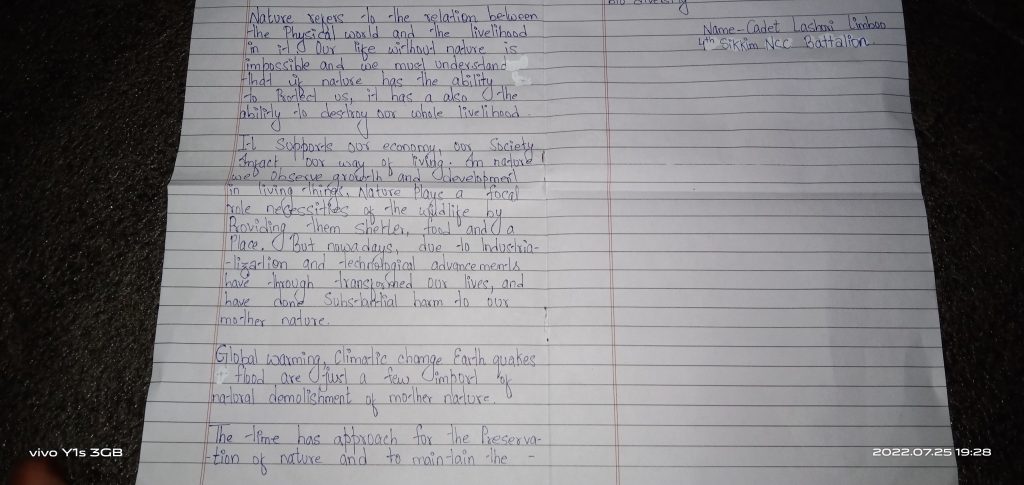 Nature refers to the relation between
the Physical world and the livelihood
in it. Our life without nature is
impossible and we must understand
that if nature has the ability
to Protect us, it has a also the
ability to destroy our whole livelihood.
It Supports our economy, our Society
Impact our way of living. In nature
we observe growth and development
in living things. Nature Plays a focal
role necessities of the wildlife by
Providing them shelter, food and a
Place. But nowadays, due to Industria-
-lization and technological advancements
have through transformed our lives, and
have done Substantial harm to our
mother nature.
Global warming, Climatic change Earth quakes
flood are just a few import of
natural demolishment of mother nature.
The time has approach for the Preserva-
-tion of nature and to maintain the -
Name - Cadet Lashmi Limboo
4th Sikkim Ncc Battalion.
vivo Y1s 3GB
2022.07.25 19:28